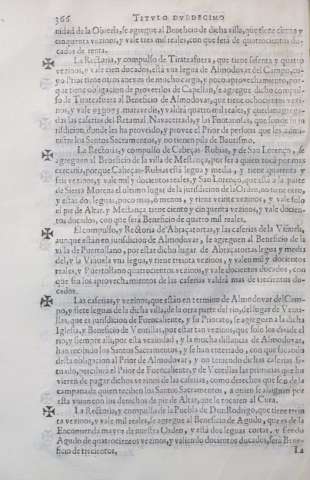 366 TITVLO DVEDECIMO
nidad de la Obreria, se agregue al Beneficio de dicha villa, que tiene ciento y
cinquenta vezinos, y vale tres mil reales, con que serà de quatrocientos du-
cados de renta.
La Rectoria, y compulso de Tirateafuera, que tiene sesenta y quatro
vezinos, y vale cien ducados, està vna legua de Almodovar del Campo, cu-
yo Prior tiene otros anexos de mucho cargo, y poco aprovechamiento, por-
que tiene obligacion de proveerlos de Capellan, se agregue dicho compul-
so de Tirateafuera al Beneficio de Almodovar, que tiene ochocientos vezi-
nos, y vale maravedis, y valdrà quatro mil reales, y queden agrega-
das las caserias del Retamal, Navacerrada, y las Fontanosas, que son de su ju-
risdicion, donde los ha proveido, y provee el Prior de persona que les admi-
nistre los Santos Sacramentos, y no tienen pila de Bautismo.
La Rectoria, y compulso de Cabeças-Rubias, y de San Lorenço, se
agreguen al Beneficio de la villa de Mestança, por ser a quien toca por mas
cercania, porque Cabeças-Rubias està legua y media, y tiene quarenta y
seis vezinos, y vale mil y docientos reales, y San Lorenço, que està a la falda
de Sierra Morena el vltimo lugar de la jurisdicion de la Orden, no tiene cura,
y està dos leguas, poco mas, ò menos, y tiene veinte vezinos, y vale solo
el pie de Altar, y Mestança tiene ciento y cinquenta vezinos, y vale docien-
tos ducados, con que serà Beneficio de quatro mil reales.
El compulso, y Rectoria de Abraçatortas, y las caserias de la Viñuela,
aunque estàn en jurisdicion de Almodovar, se agreguen al Beneficio de la
villa de Puertollano, por estar dicho lugar de Abraçatortas legua y media
dèl, y la Viñuela vna legua, y tiene treinta vezinos, y valen mil y docientos
reales, y Puertollano quatrocientos vezinos, y vale docientos ducados, con
que sin los aprovechamientos de las caserias valdrà mas de trecientos du-
cados.
Las caserias, y vezinos, que estàn en termino de Almodovar del Cam-
po, y siete leguas de la dicha villa, de la otra parte del rio, del lugar de Venti-
llas, que es jurisdicion de Fuencaliente, y su Priorato, se agreguen a la dicha
Iglesia, y Beneficio de Ventillas, por estar tan vezinos, que solo los divide el
rio, y siempre assi, por esta vezindad, y la mucha distancia de Almodovar,
han recibido los Santos Sacramentos, y se han enterrado, con que solo ha
dicho obligacion al Prior de Almodovar, y no teniendo dichas caserias se-
ñalado, percibirà el Prior de Fuencaliente, y de Ventillas las primicias que hu-
vieren de pagar dichos vezinos de las caserias, como derechos que son de la
campanada quien reciben los Santos Sacramentos, a quien se asseguran por
esta via, con los derechos de pie de Altar, que le tocaren al Cura.
La Rectoria, y compulso de la Puebla de Don Rodrigo, que tiene trein-
ta vezinos, y vale mil reales, se agregue al Beneficio de Agudo, que es de la
Encomienda mayor de nuestra Orden, y està dos leguas cortas, y siendo
Agudo de quatrocientos vezinos, y valiendo docientos ducados, serà Bene-
ficio de trecientos,
La